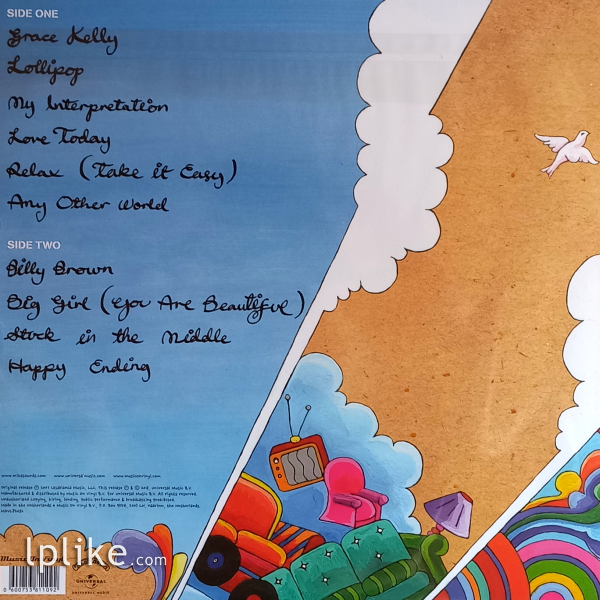 SIDE ONE
Grace Kelly
Lollipop
My Interpretation
Love Today
Relax (Take it Easy)
Any Other World
SIDE TWO
Billy Brown
Big Girl (You Are Beautiful)
Stuck in the Middle
Happy Ending
www.mikasounds.com www.universalmusic.com www.musiconvinyl.com
lplike.com
UNIVERSAL
UNIVERSAL MUSIC
0 600753 811092